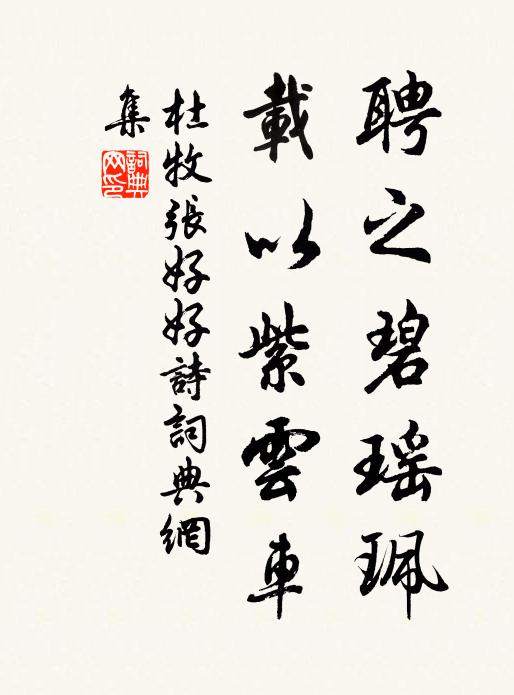 聘之碧瑶珮
載以紫雲車
杜牧張好好詩詞典網
集
詞典
网印